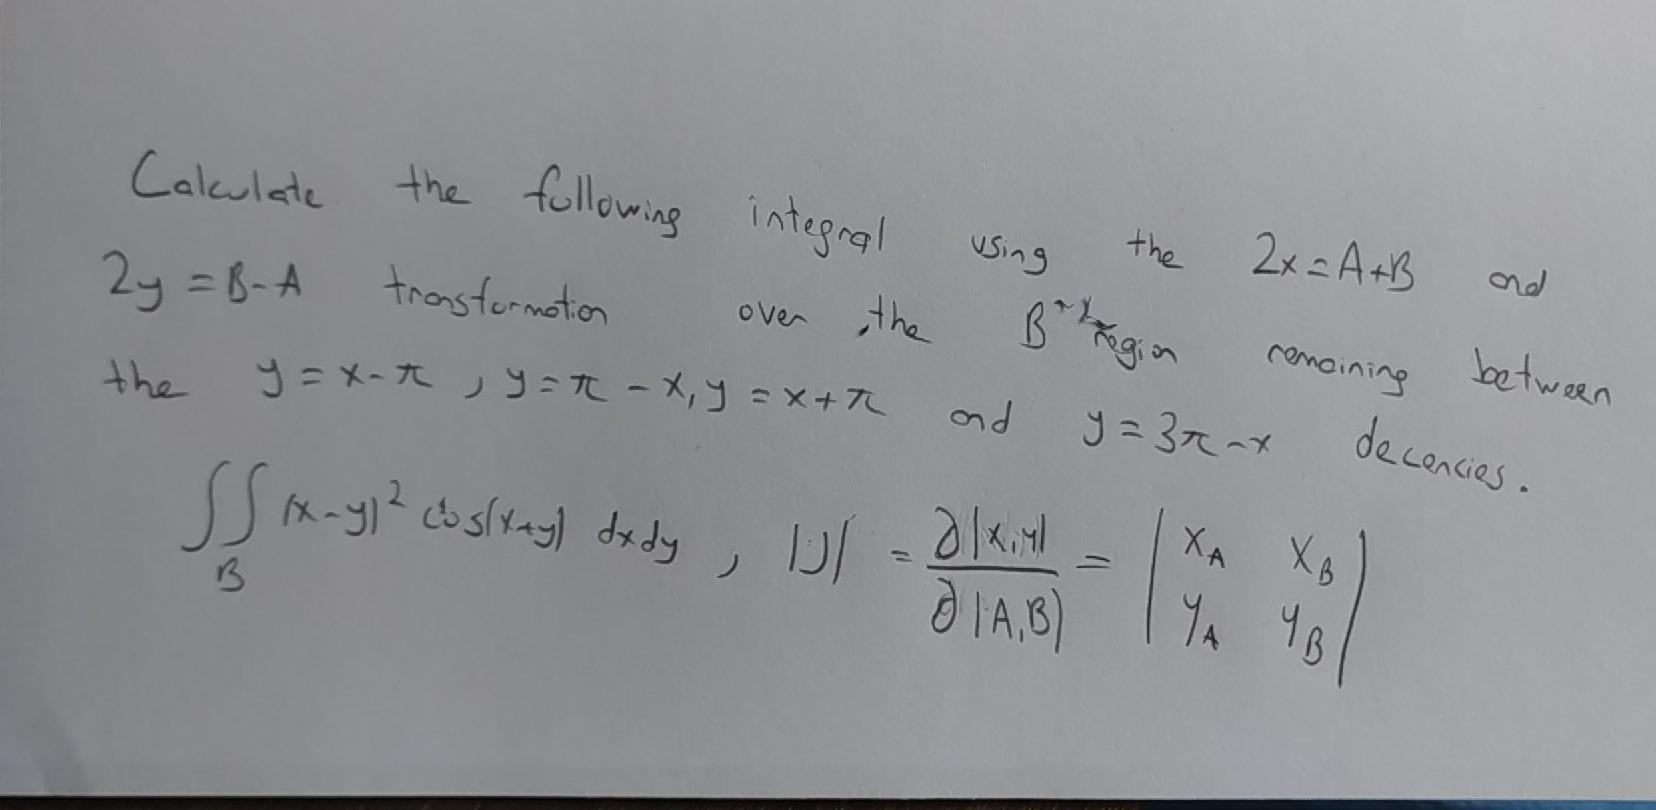 Calculate the following integral using the 2x=A+B and
2y=B-A transformation over the B region remaining between
the y=x-π, y=π-x, y=x+π and y=3π-x decencies.
∬ (x-y)² cos(x+y) dxdy, |J| = ∂(x,y)/∂(A,B) = | x_A x_B |
B | y_A y_B |